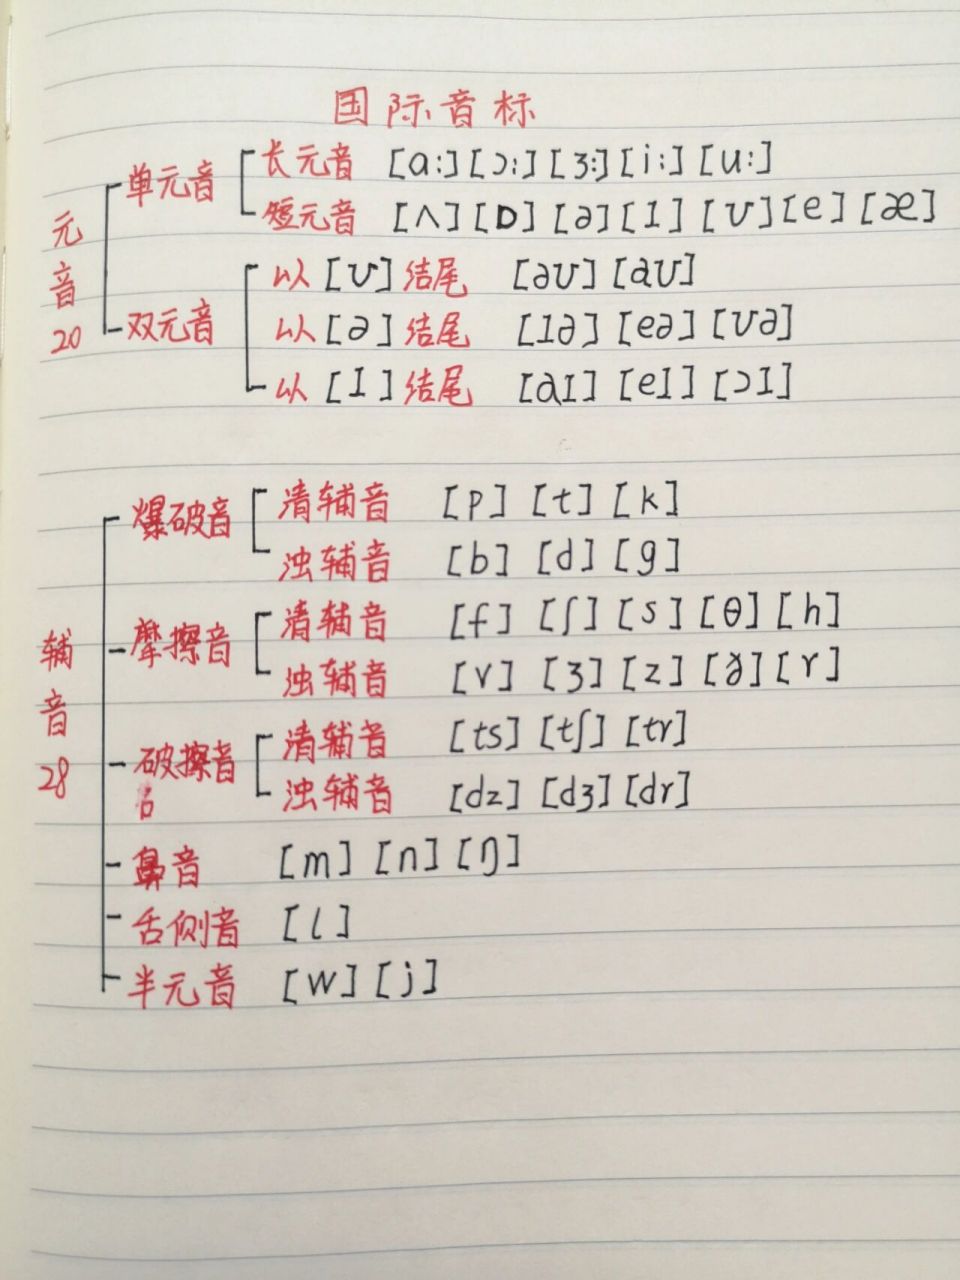 国际音标
元音20
单元音
长元音 [ɑː] [ɔː] [ɜː] [iː] [uː]
短元音 [ʌ] [ɒ] [ə] [ɪ] [ʊ] [e] [æ]
双元音
以 [ʊ] 结尾 [əʊ] [aʊ]
以 [ə] 结尾 [ɪə] [eə] [ʊə]
以 [ɪ] 结尾 [aɪ] [eɪ] [ɔɪ]
辅音28
爆破音
清辅音 [p] [t] [k]
浊辅音 [b] [d] [g]
摩擦音
清辅音 [f] [ʃ] [s] [θ] [h]
浊辅音 [v] [ʒ] [z] [ð] [r]
破擦音
清辅音 [ts] [tʃ] [tr]
浊辅音 [dz] [dʒ] [dr]
鼻音 [m] [n] [ŋ]
舌侧音 [l]
半元音 [w] [j]